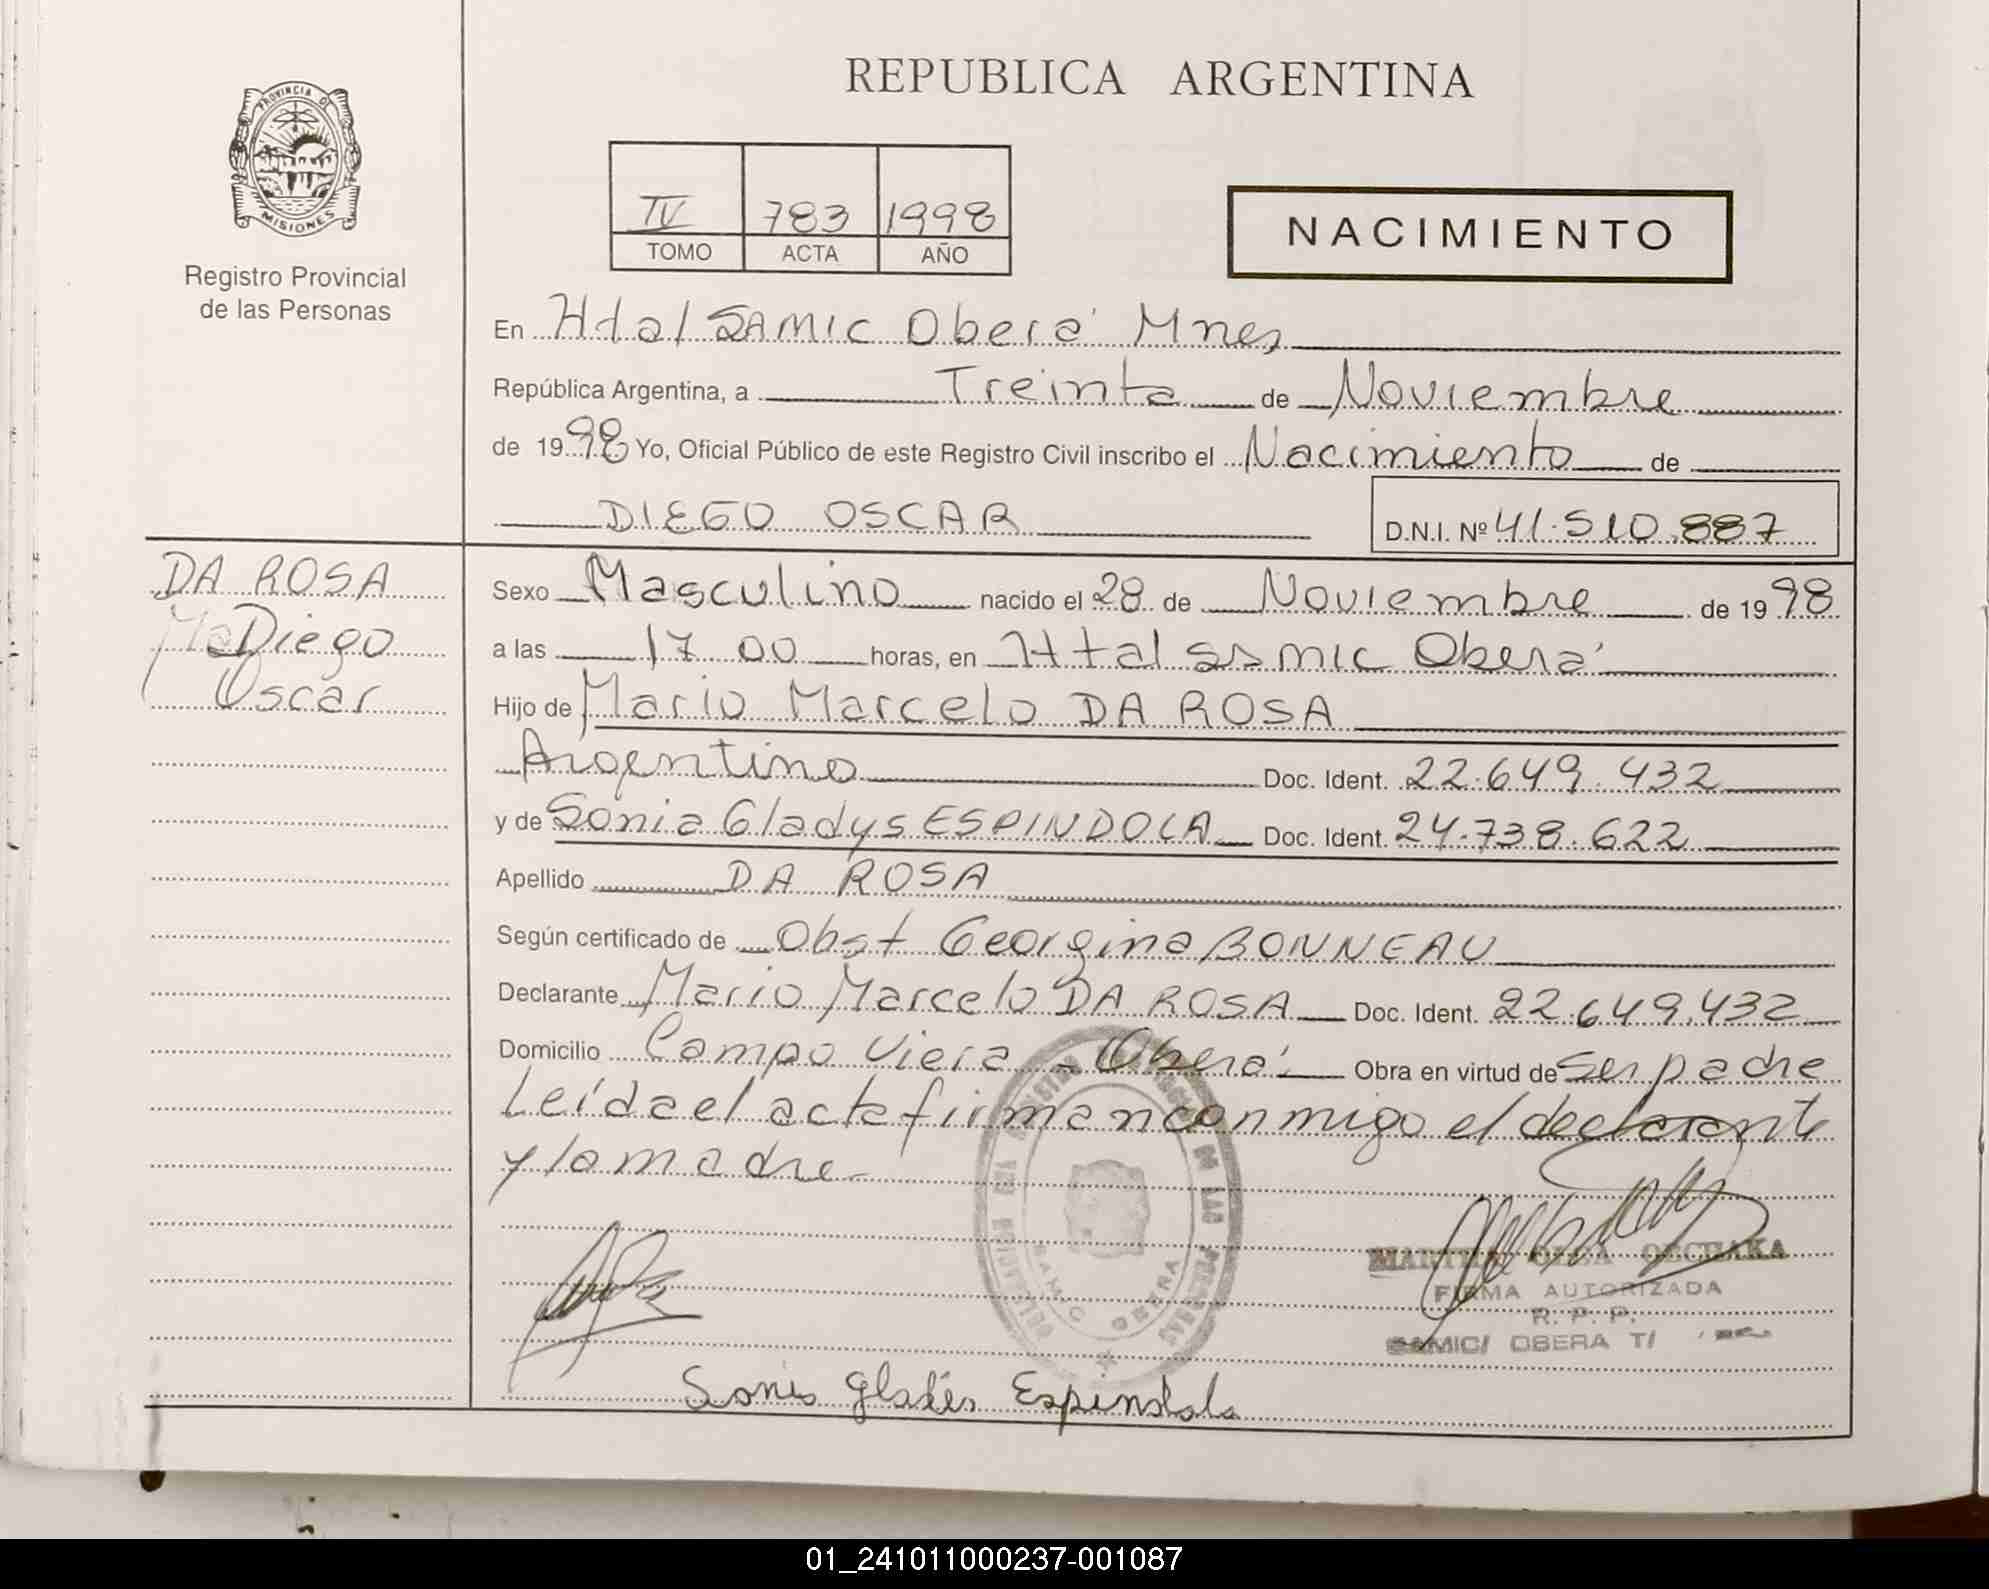 REPUBLICA ARGENTINA
PROVINCIA DE
MISIONES
Registro Provincial
de las Personas
IV 783 1998
TOMO ACTA AÑO
NACIMIENTO
En Htal SAMIC Oberá Mnes
República Argentina, a Treinta de Noviembre
de 1998 Yo, Oficial Público de este Registro Civil inscribo el Nacimiento de
DIEGO OSCAR
D.N.I. Nº 41.510.887
DA ROSA
Diego
Oscar
Sexo Masculino nacido el 28 de Noviembre de 1998
a las 17 00 horas, en Htal SAMIC Oberá
Hijo de Mario Marcelo DA ROSA
Argentino Doc. Ident. 22.649.432
y de Sonia Gladys ESPINDOLA Doc. Ident. 24.738.622
Apellido DA ROSA
Según certificado de Obst Georgina BONNEAU
Declarante Mario Marcelo DA ROSA Doc. Ident. 22.649.432
Domicilio Campo Viera - Oberá Obra en virtud de ser padre
Leída el acta firman conmigo el declarante
y la madre
DE LAS PERSONAS
SAMIC OBERA
FIRMA AUTORIZADA
R. P. P.
SAMIC/ OBERA
Sonia Gladis Espindola
01_241011000237-001087